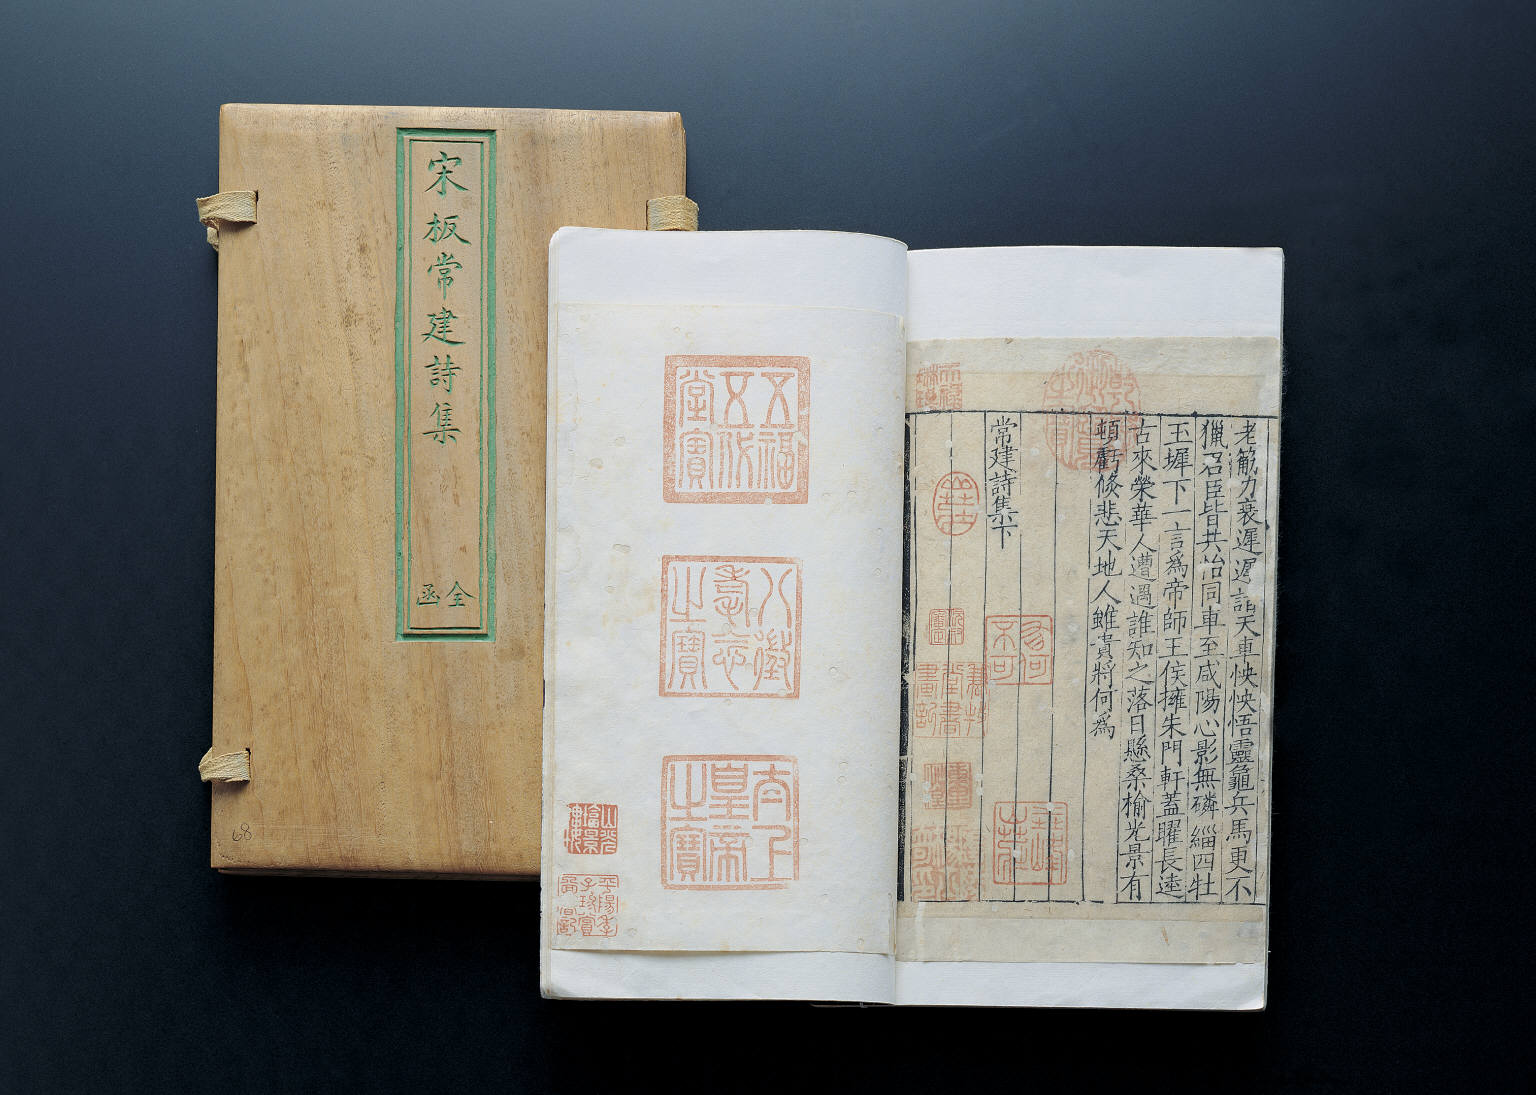 宋板常建詩集
全函
68
老筋力衰遲遲詣天車怏怏悟靈龜兵馬更不
獵君臣皆共怡同車至咸陽心影無磷緇四牡
玉墀下一言爲帝師王侯擁朱門軒蓋曜長逵
古來榮華人遭遇誰知之落日懸桑榆光景有
頓虧倏悲天地人雖貴將何爲
常建詩集下
乾隆御覽之寶
天祿琳琅
五福五代堂寶
八徵耄念之寶
太上皇帝之寶